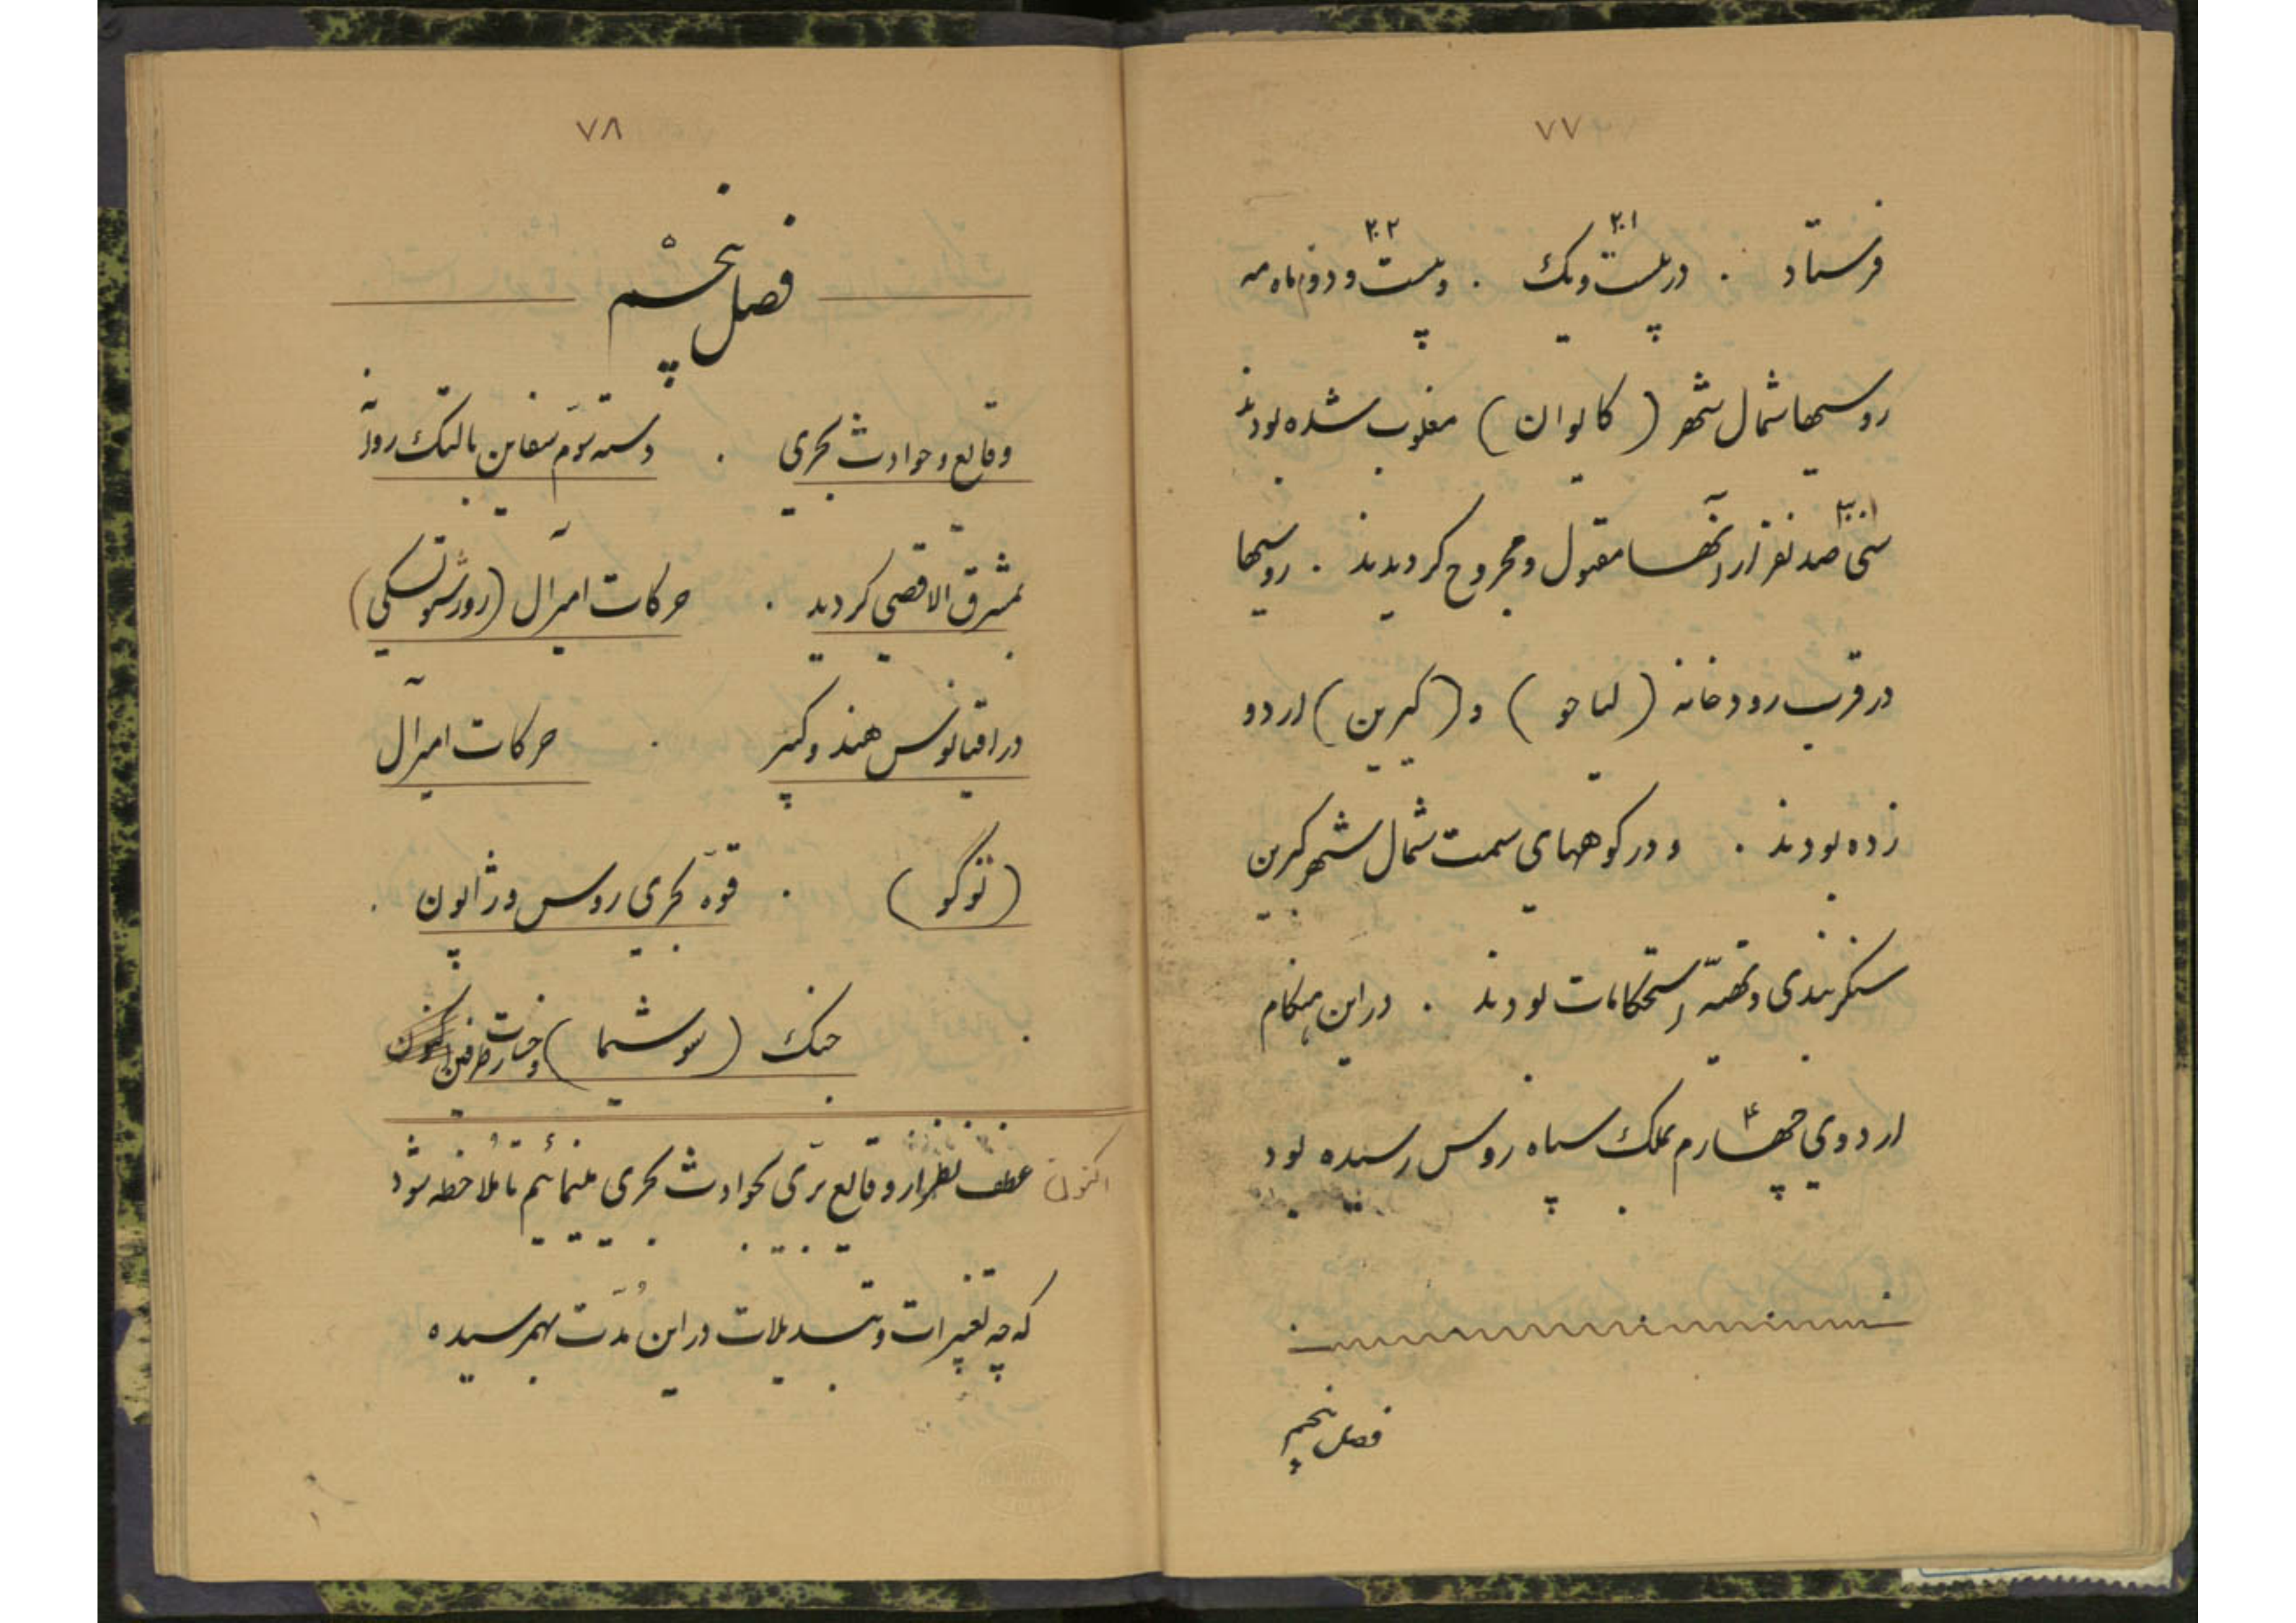 ۷۷
فرستاد . در بیست و یک . و بیست و دوم ماه مه
۲۱ ۲۲
روسیها شمال شهر ( کایوان ) مغلوب شده بودند
سی صد نفر از آنها مقتول و مجروح گردیدند . روسیها
۳۰۰
در قرب رودخانه ( لیاخو ) و ( کیرین ) اردو
زده بودند . و در کوههای سمت شمال شهر کیرین
سنگربندی و تهیه استحکامات بودند . در این هنگام
اردوی چهارم بملک سپاه روس رسیده بود
۴
فصل پنجم
۷۸
فصل پنجم
۵
وقایع و حوادث بحری . دسته سوم سفاین بالتیک روانه
بمشرق الاقصی گردید . حرکات امیرآل (روژستونسکی)
در اقیانوس هند و کبیر . حرکات امیرآل
( توگو ) . قوه بحری روس و ژاپون .
جنگ ( سوشیما ) و خسارت طرفین
اکنون عطف نظر از وقایع بری بحوادث بحری مینمائیم تا ملاحظه شود
که چه تغییرات و تبدیلات در این مدت بهم رسیده